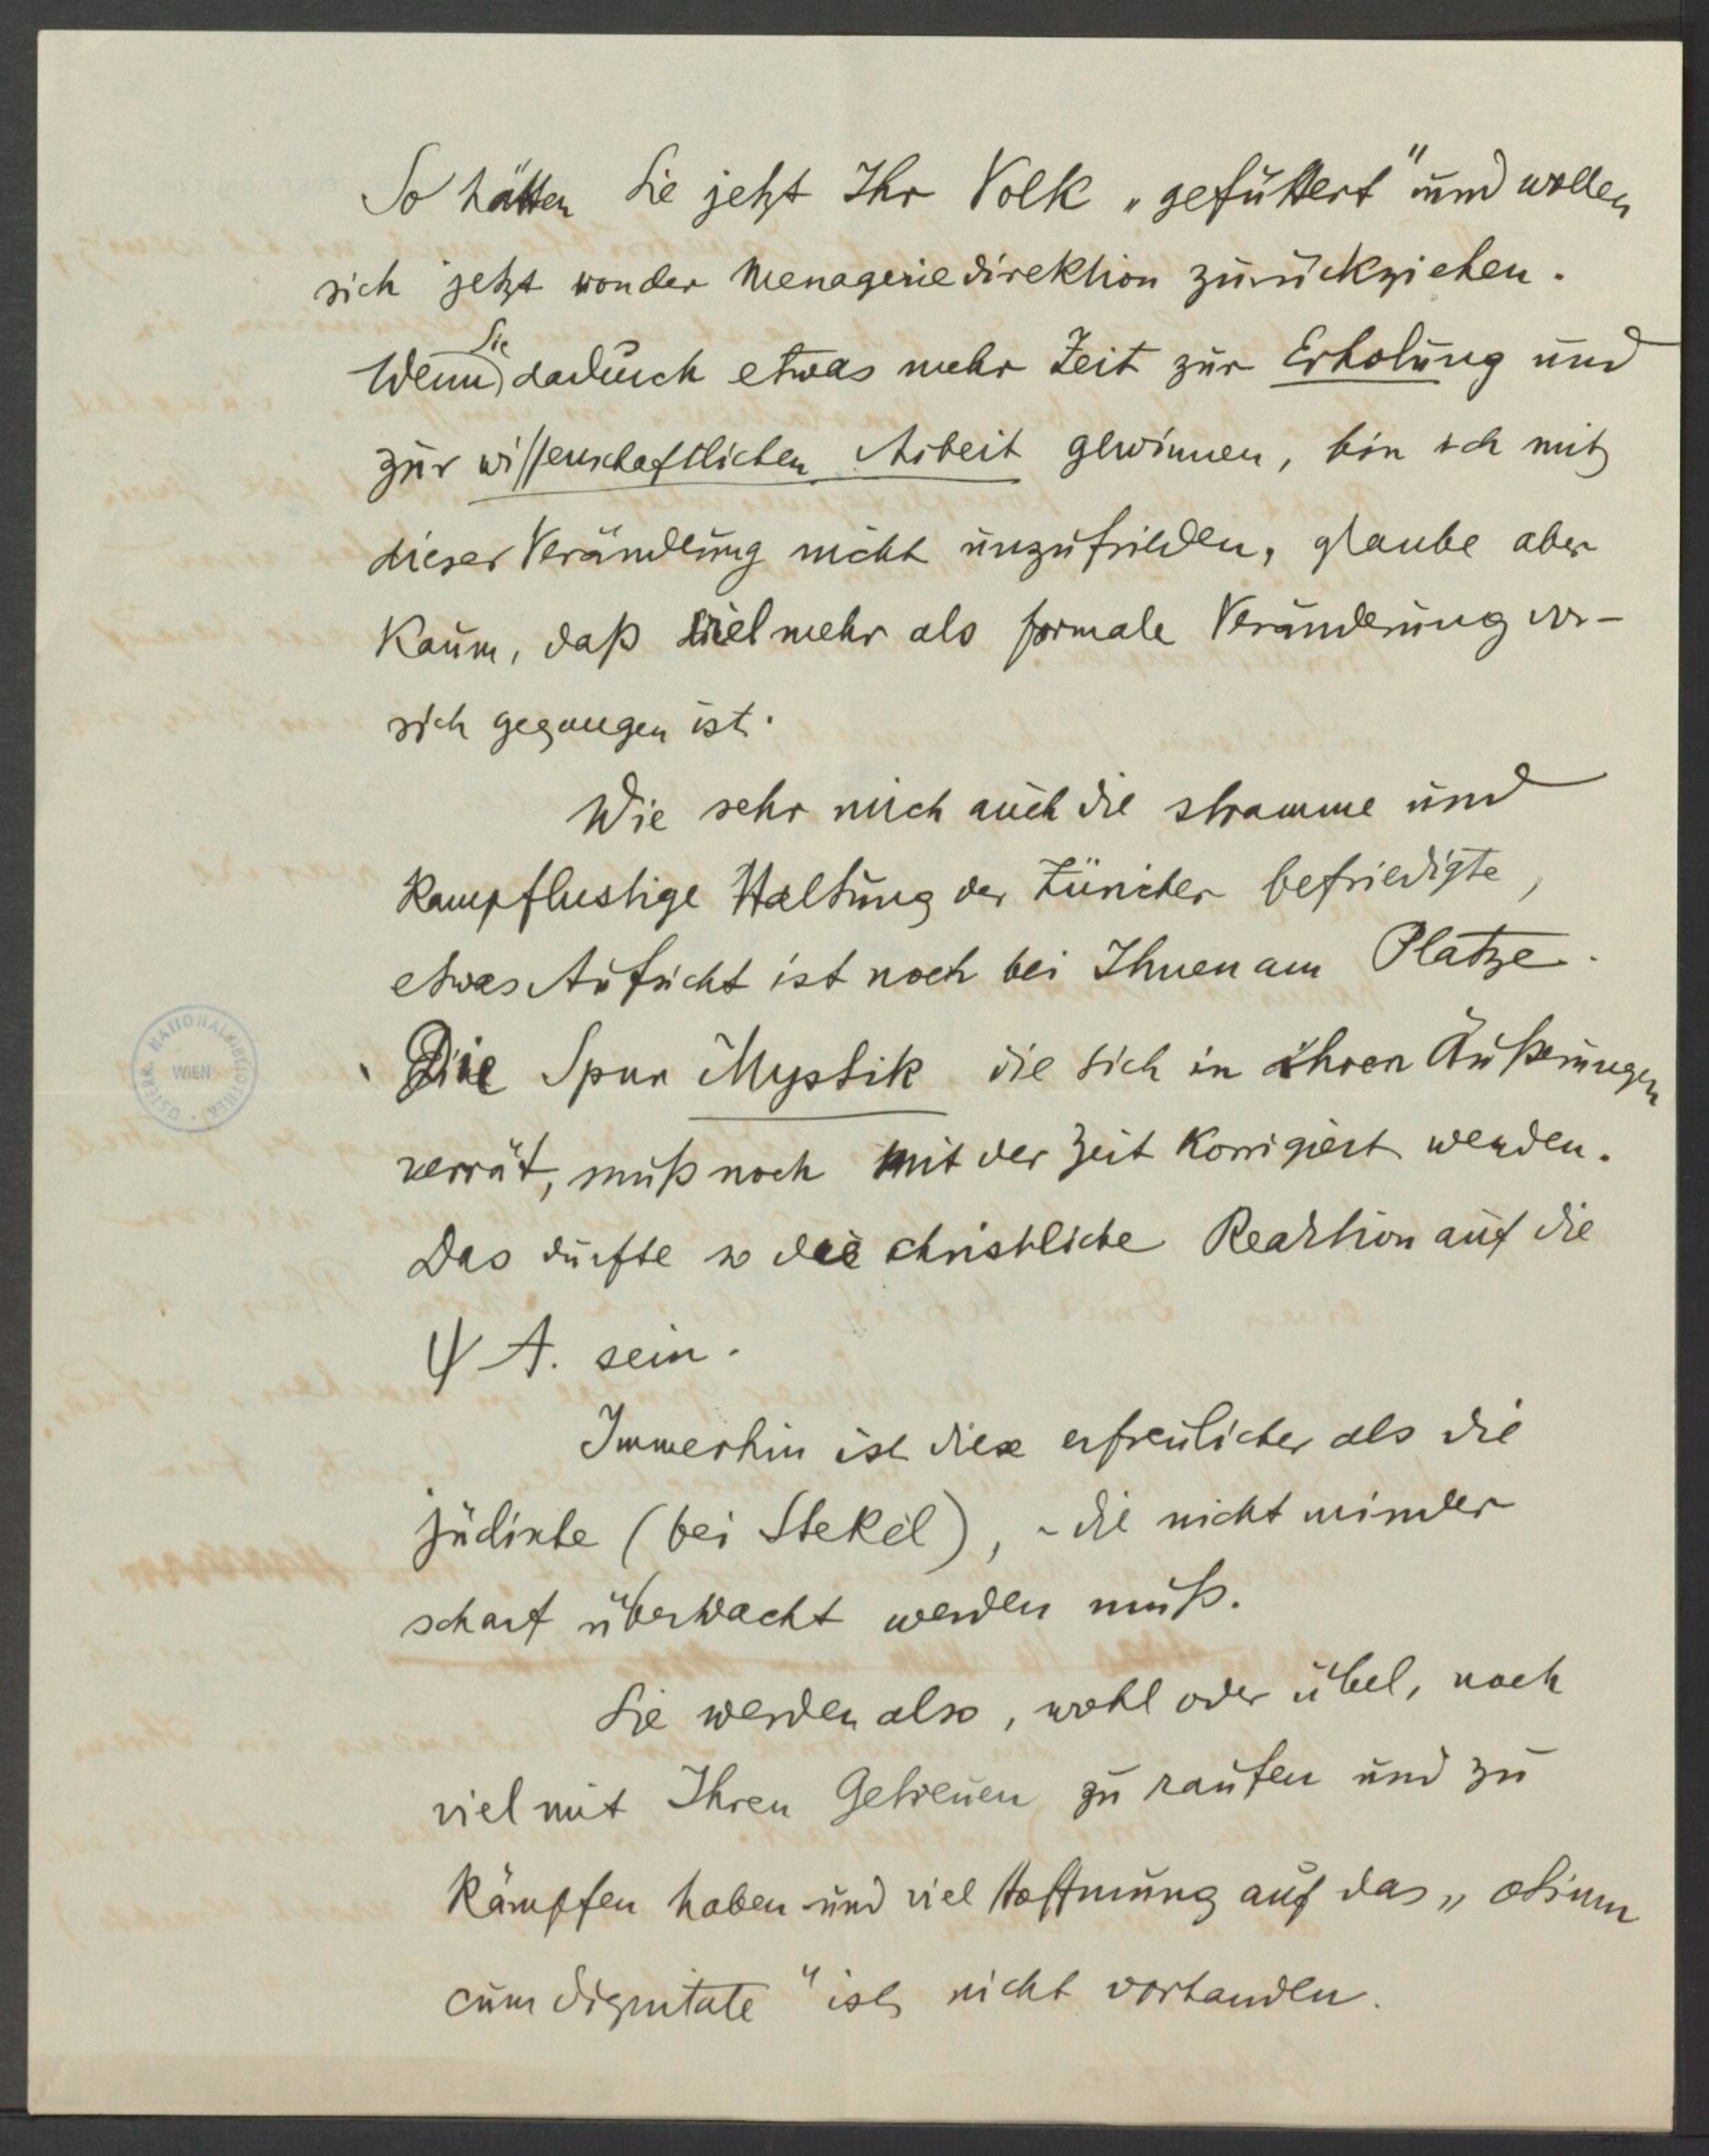 So hätten Sie jetzt Ihr Volk „gefüttert" und wollen
sich jetzt von der Menageriedirektion zurückziehen.
Sie
Wenn dadurch etwas mehr Zeit zur Erholung und
zur wissenschaftlichen Arbeit gewinnen, bin ich mit
dieser Verändeung nicht unzufrieden, glaube aber
kaum, daß viel mehr als formale Veränderung vor-
sich gegangen ist.
Wie sehr mich auch die stramme und
kampflustige Haltung der Züricher befriedigte,
etwas Aufsicht ist noch bei Ihnen am Platze.
Die Spur Mystik die sich in ihren Äußerungen
verrät, muß noch mit der Zeit korrigiert werden.
Das dürfte so die christliche Reaktion auf die
ψ A. sein.
Immerhin ist diese erfreulicher als die
jüdische (bei Stekel), - die nicht minder
scharf überwacht werden muß.
Sie werden also, wohl oder übel, noch
viel mit Ihren Getreuen zu raufen und zu
kämpfen haben und viel Hoffnung auf das „otium
cum dignitate" ist nicht vorhanden.
ÖSTERR. NATIONALBIBLIOTHEK
WIEN